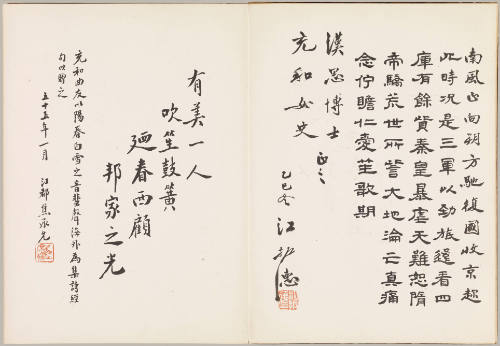 南風正向朔方馳復國收京超
此時況是三軍以勁旅還看四
庫有餘貲秦皇暴虐天難恕隋
帝驕荒世所訾大地淪亡真痛
念佇瞻仁愛笙歌期
漢思博士
充和女史 正之
乙巳冬 江
有美一人
吹笙鼓簧
廼眷西顧
邦家之光
充和曲友以陽春白雪之音蜚聲海外為集詩經
句以贈之
五十五年一月 江都焦承允